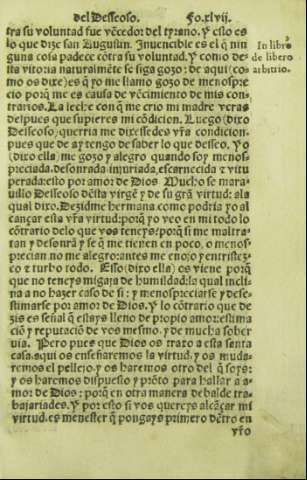 del Desseoso. Fo.xlvij.
tra su voluntad fue vẽcedor del tyrano. Y esto es
lo que dize san Augustin. Inuencible es el q̃ nin
guna cosa padece cõtra su voluntad. Y como de-
sta vitoria naturalmẽte se siga gozo: de aqui (co-
mo os dixe) es q̃ yo me llamo gozo de menospre
cio porq̃ me es causa de vẽcimiento de mis con
trarios. La leche con q̃ me crio mi madre veras
despues que supieres mi cõdicion. Luego (dixo
Desseoso) querria me dixessedes vr̃a condicion.
pues que de ay tengo de saber lo que desseo. Yo
(dixo ella) me gozo y alegro quando soy menos-
preciada, desonrada, injuriada, escarnecida e vitu
perada: esto por amor de Dios Mucho se mara-
uillo Desseoso desta virgẽ y de su grã virtud: a la
qual dixo. Dezidme hermana como podria yo al
cançar esta vr̃a virtud: porq̃ yo veo en mi todo lo
cõtrario delo que vos teneys: porq̃ si me maltra-
tan y desonrã y se q̃ me tienen en poco, o menos-
precian no me alegro: antes me enojo y entristez-
co e turbo todo. Esso (dixo ella) os viene porq̃
que no teneys migaja de humildad: la qual incli
na a no hazer caso de si: y menospreciarse y dese-
stimarse por amor de Dios. Y lo cõtrario que de
zis es señal q̃ estays lleno de propio amor: estima
ciõ y reputaciõ de vos mesmo, y de mucha sober
uia. Pero pues que Dios os traxo a esta santa
casa, aqui os enseñaremos la virtud, y os muda-
remos el pellejo, y os haremos otro del q̃ soys:
y os haremos dispuesto y prõto para hallar a a-
mor de Dios: porq̃ en otra manera de balde tra-
bajariades. Y por esto si vos quereys alcãçar mi
virtud, es menester q̃ pongays primero dẽtro en
vr̃o
In libro
de libero
arbitrio.